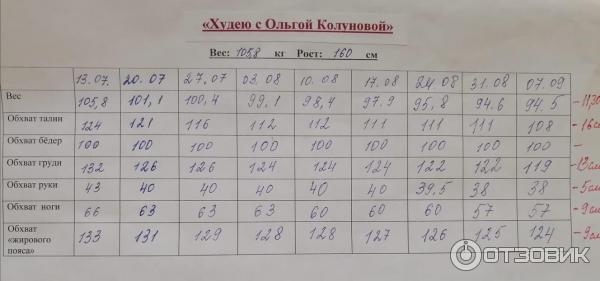 «Худею с Ольгой Колуновой»
Вес: 105,8 кг Рост: 160 см
13.07. 20.07 27.07 03.08 10.08 17.08 24.08 31.08 07.09
Вес 105,8 101,1 100,4 99,1 98,4 97.9 95.8 94.6 94.5
Обхват талии 124 121 116 112 112 111 111 111 108 -16см
Обхват бёдер 100 100 100 100 100 100 100 100 100 -
Обхват груди 132 126 126 124 124 124 122 122 119 -13см
Обхват руки 43 40 40 40 40 40 39,5 38 38 -5см
Обхват ноги 66 63 63 63 60 60 60 57 57 -9см
Обхват «жирового пояса» 133 131 129 128 128 127 126 125 124 -9см
ОТЗОВИК